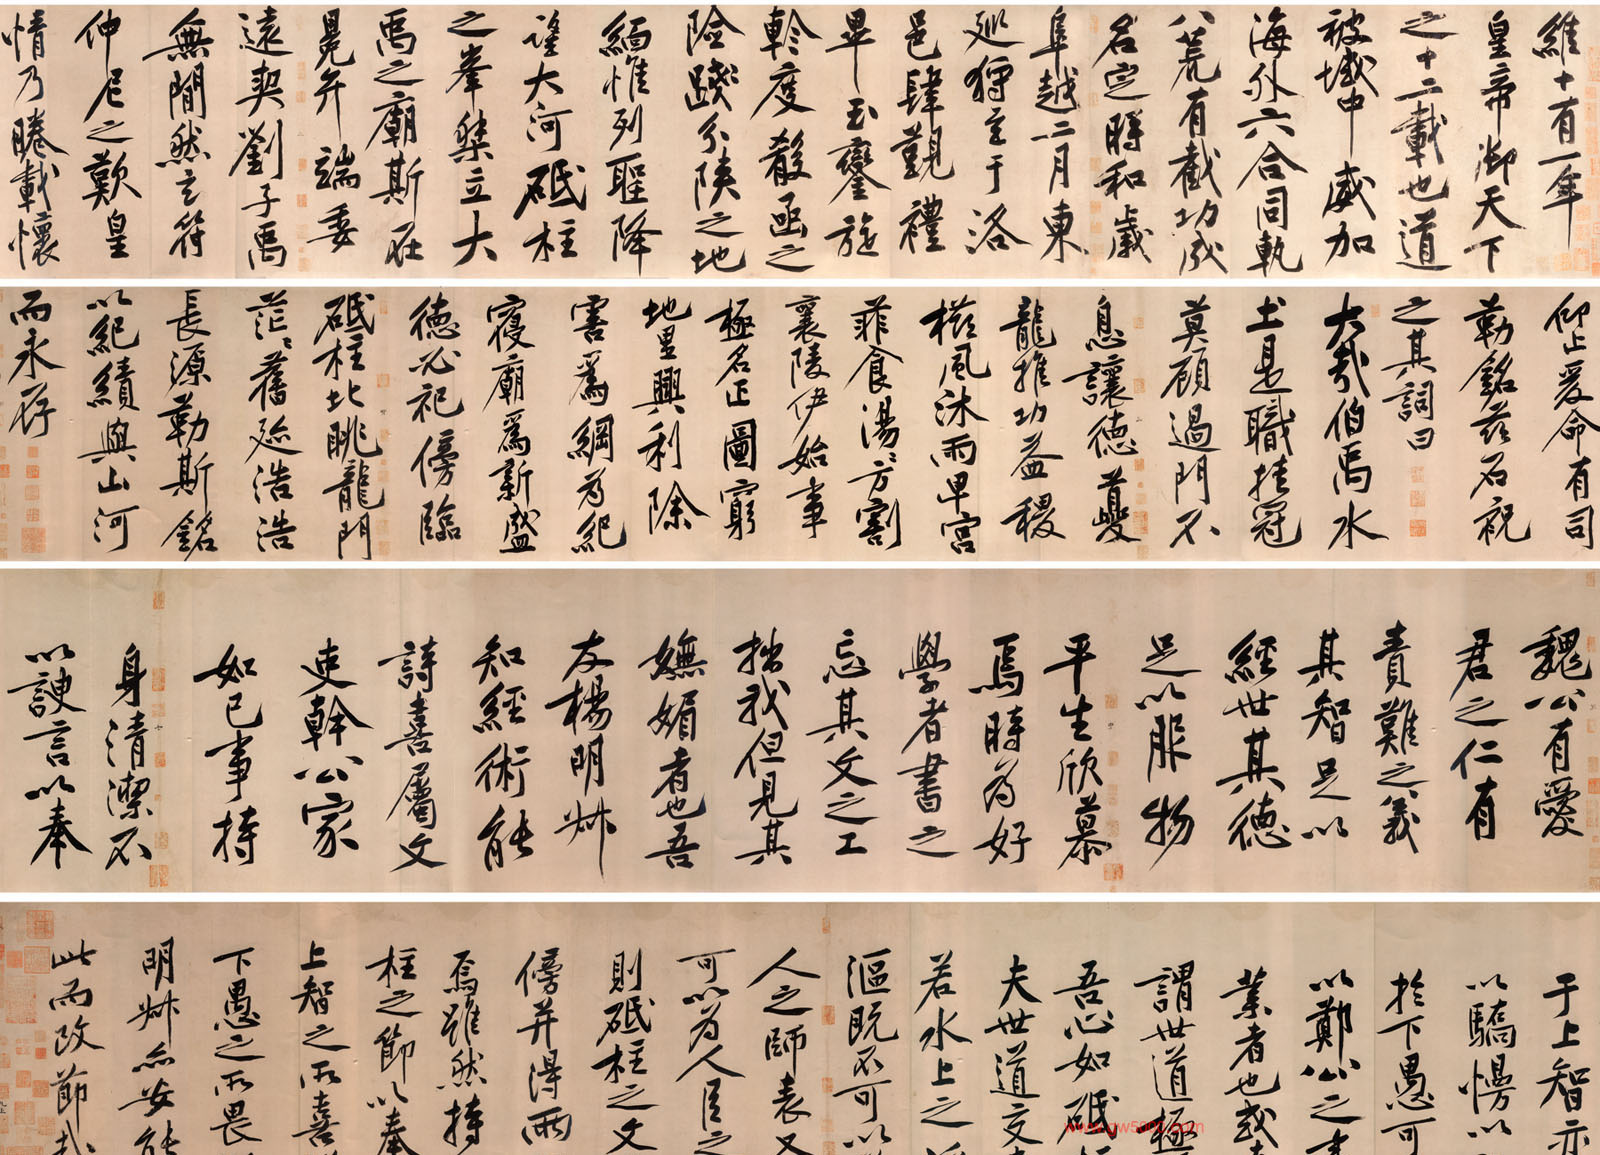 維十有一年
皇帝御天下
之十二載也道
被域中威加
海外六合同軌
八荒有截功成
名定時和歲
阜越二月東
巡狩至于洛
邑肆覲禮
畢玉鑾旋
軫度殽函之
險踐分陝之地
緬惟列聖降
望大河砥柱
之峯桀立大
禹之廟斯在
晃弁端委
遠契劉子禹
無間然玄符
仲尼之歎皇
情乃睠載懷
仰止爰命有司
勒銘茲石祝
之其詞曰
大哉伯禹水
土是職挂冠
莫顧過門不
息讓德夔
龍推功益稷
櫛風沐雨卑宮
菲食湯湯方割
襄陵伊始事
極名正圖窮
地里興利除
害為綱為紀
寢廟為新盛
德必祀傍臨
砥柱北眺龍門
茫茫舊跡浩浩
長源勒斯銘
以紀績與山河
而永存
魏公有愛
君之仁有
責難之義
其智足以
經世其德
足以服物
平生欣慕
焉時為好
學者書之
忘其文之工
拙我但見其
嫵媚者也吾
友楊明叔
知經術能
詩喜屬文
吏幹公家
如己事持
身清潔不
以諛言以奉
于上智亦
以驕慢以
於下愚可
以鄭公之
業者也或
謂世道極
吾心如砥
夫世道交
若水上之
漚既不可以
人之師表又
可以為人臣之
則砥柱之文
傍并得兩
焉雖然持
柱之節以奉
上智之所喜
下愚之所畏
明叔亦安能
此而改節哉
www.gw5000.com